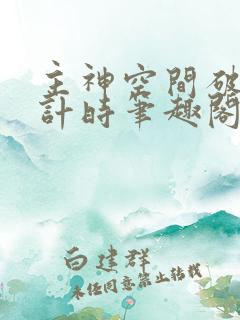 主神空間破
計時筆趣閣
白建群
未任同意禁止转载